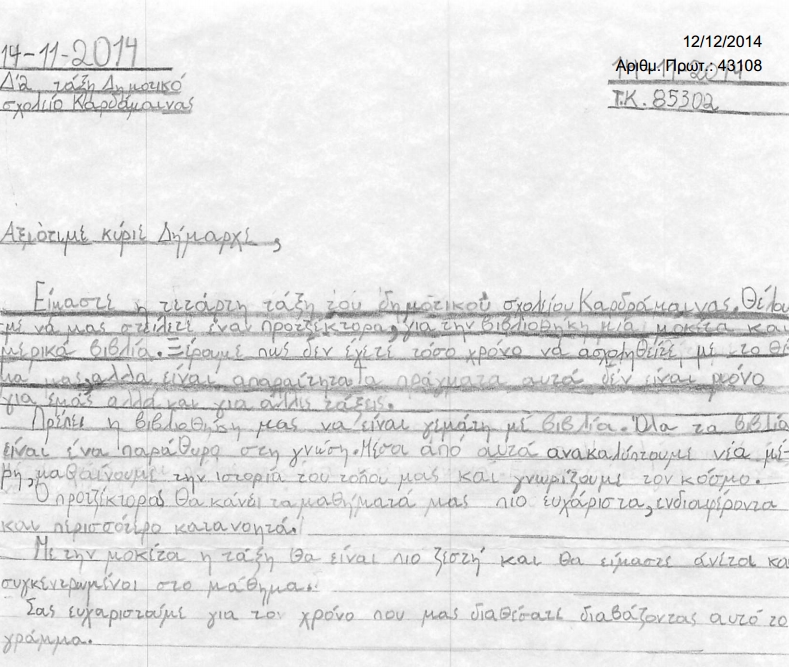 12/12/2014
14-11-2014
Αριθμ. Πρωτ.: 43108
Δ'2 τάξη Δημοτικό
Τ.Κ. 85302
σχολείο Καρδάμαινας
Αξιότιμε κύριε Δήμαρχε,
Είμαστε η τετάρτη τάξη του δημοτικού σχολείου Καρδράμαινας. Θέλου
με να μας στείλετε ένα προτζέκτορα, για την βιβλιοθήκη μία μοκέτα και
μερικά βιβλία. Ξέρουμε πως δεν έχετε τόσο χρόνο να ασχοληθείτε με το θέ
μα μας αλλα είναι απαραίτητα. Τα πράγματα αυτά δεν είναι μόνο
για εμάς αλλά και για άλλες τάξεις.
Πρέπει η βιβλιοθήκη μας να είναι γεμάτη με βιβλία. Όλα τα βιβλία
είναι ένα παράθυρο στη γνώση. Μέσα από αυτά ανακαλύπτουμε νέα μέ-
ρη, μαθαίνουμε την ιστορία του τόπου μας και γνωρίζουμε τον κόσμο.
Ο προτζέκτορας θα κάνει τα μαθήματά μας πιο ευχάριστα, ενδιαφέροντα
και περισσότερο κατανοητά.
Με την μοκέτα η τάξη θα είναι πιο ζεστή και θα είμαστε άνετα κα
συγκεντρωμένοι στο μάθημα.
Σας ευχαριστούμε για τον χρόνο που μας διαθέσατε διαβάζοντας αυτό το
γράμμα.